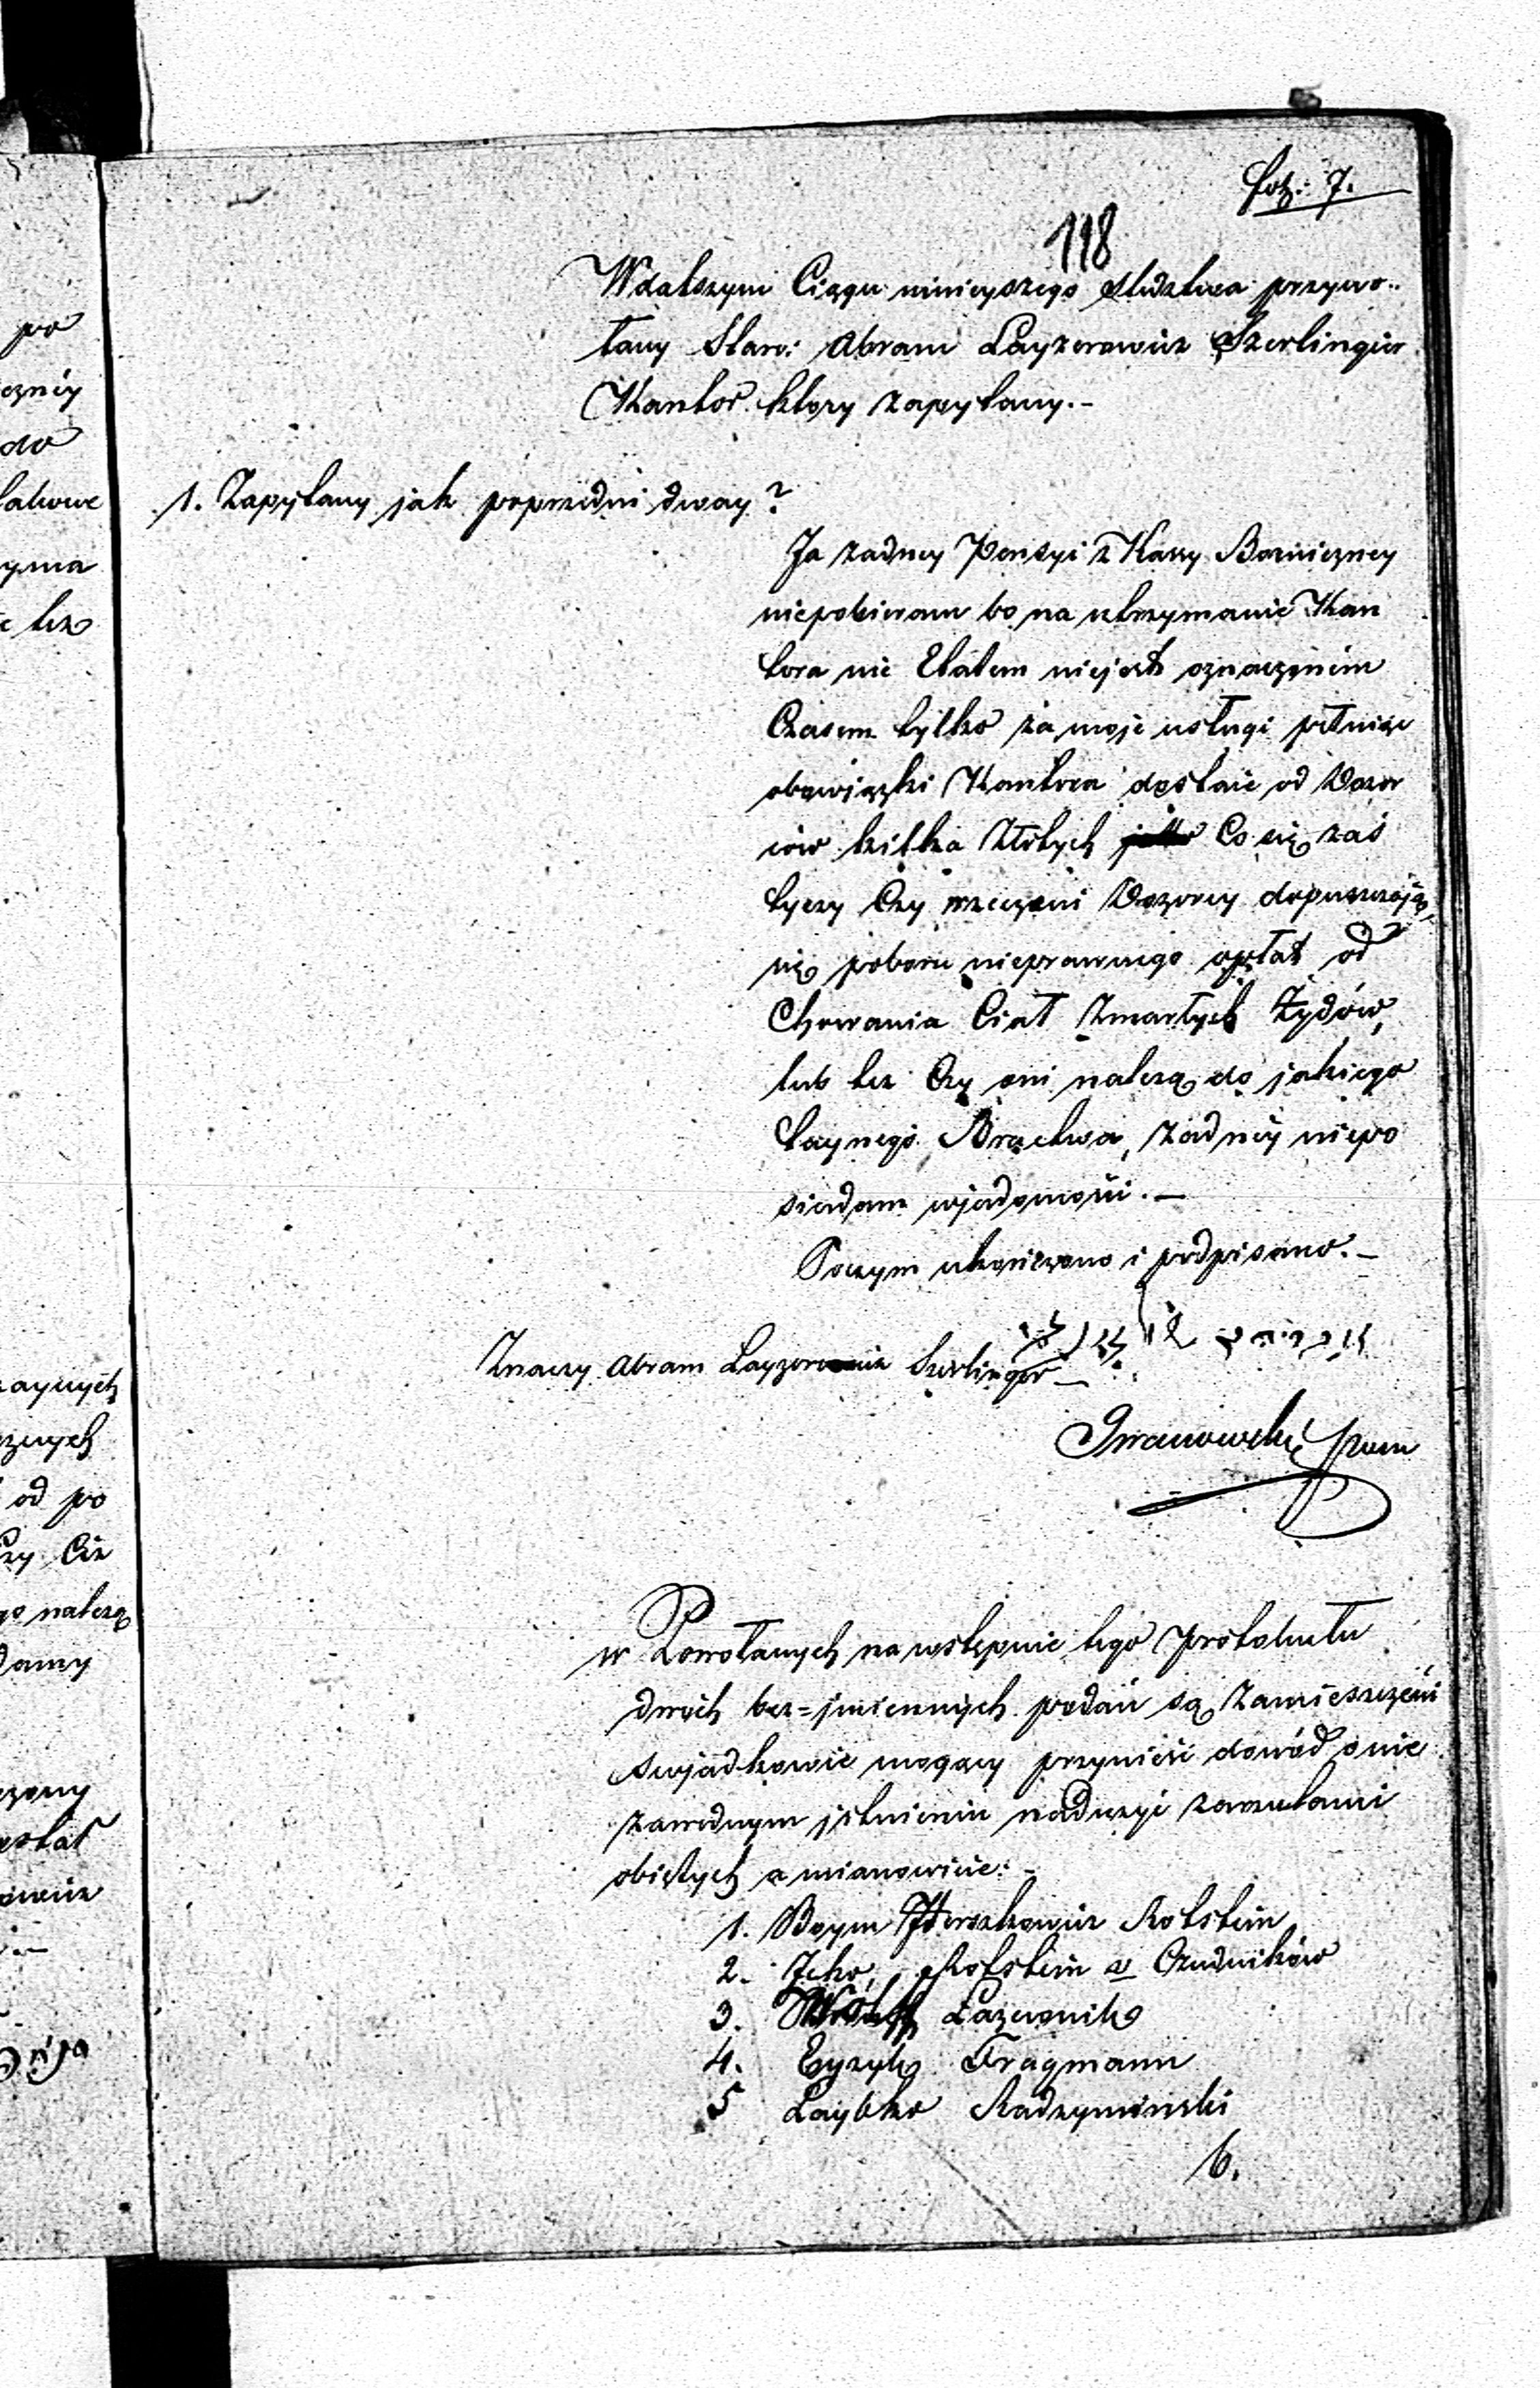 fol: 7.
118
W dalszym Ciągu ninieyszego Śledztwa przywo-
łany Staro: Abram Layzerowicz Szerlinger
Kantor. ktory zapytany.-
1. Zapytany jak poprzedni dway?
Ja żadney Pensyi z Kassy Bożniczney
niepobieram bo na utrzymanie Kan
tora nic Etatem niejest oznaczonem
Czasem tylko za moje usługi pełniąc
obowiązki Kantora dostaie od Dozor
ców kilka Złotych Co się zaś
tyczy Czy rzeczeni Dozorcy dopuszczają
się poboru nieprawnego opłat od
Chowania Ciał Zmarłych Żydów,
lub tez Czy oni należą do jakiego
taynego Bractwa, żadnéy niepo
siadam wjadomości.-
Poczym ukończono i podpisano.-
Znaczy Abram Layzerowicz Szerlinger-
Iwanowski
w Powołanych na wstępnie tego Protokułu
dwóch bez=jmiennych podań są Zamieszczeni
swjadkowie mogący przynieść dowód o nie
zawodnym jstnieniu nadużyć zarzutami
obiętych a mianowicie:-
1. Boym Herszkowicz Rotstein
2. Jcko, Rotstein z Czudników
3. Wolff Łazewnik
4. Eyzyk Fragmann
5 Laybko Radzyminski
6.
po
czney
do
yma
od po
należą